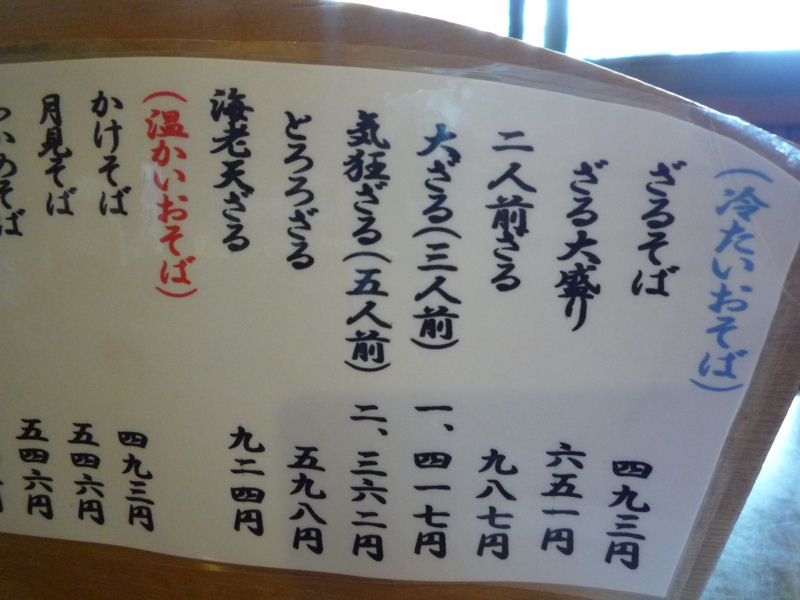 (冷たいおそば)
ざるそば 四九三円
ざる大盛り 六五一円
二人前ざる 九八七円
大ざる(三人前) 一、四一七円
気狂ざる(五人前) 二、三六二円
とろろざる 五九八円
海老天ざる 九二四円
(温かいおそば)
かけそば 四九三円
月見そば 五四六円
かめそば 五四六円